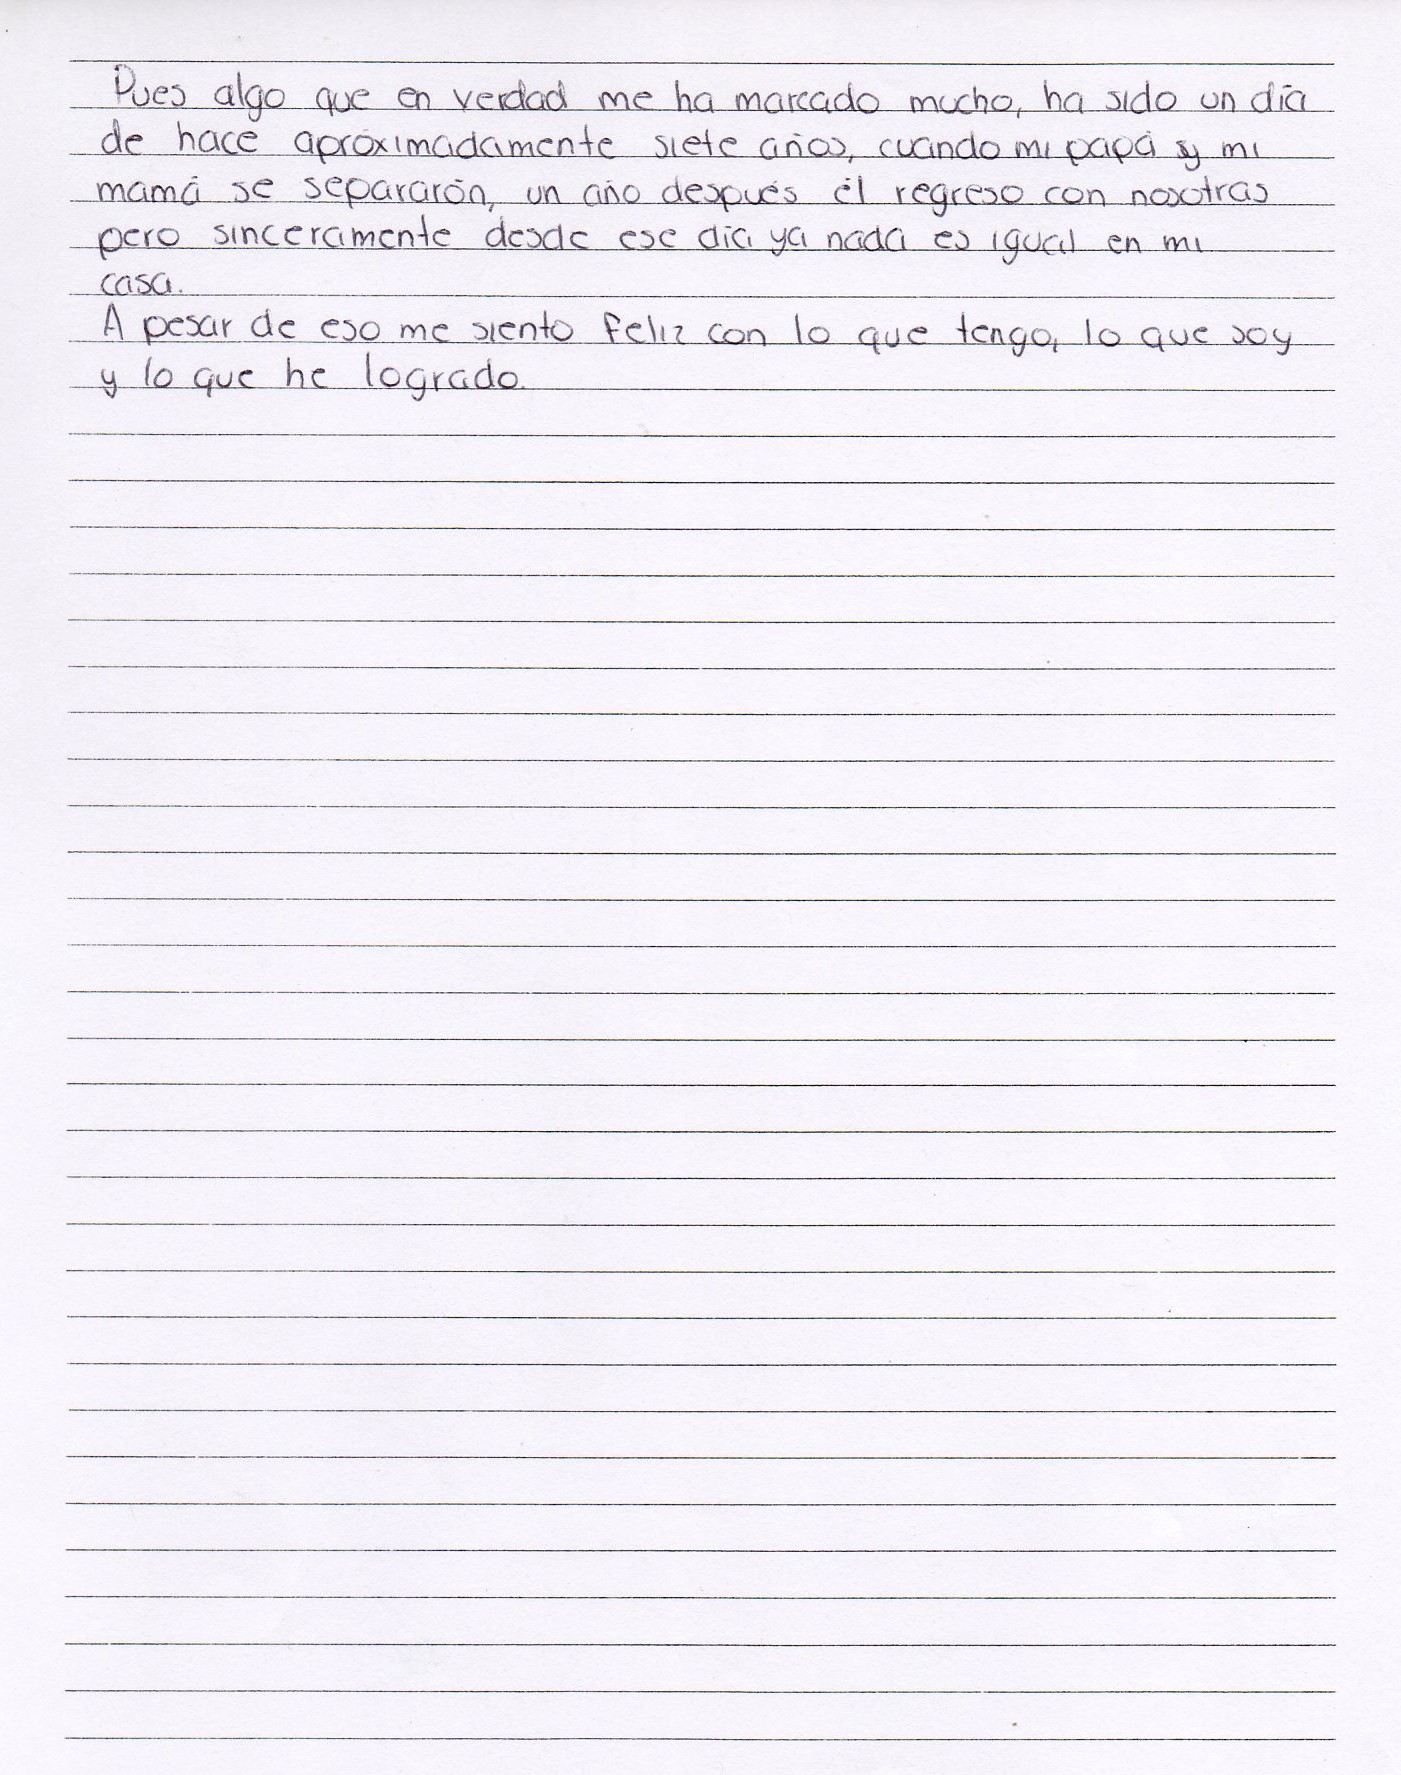 Pues algo que en verdad me ha marcado mucho, ha sido un día
de hace apróximadamente siete años, cuando mi papá y mi
mamá se separarón, un año después él regreso con nosotras
pero sinceramente desde ese día ya nada es igual en mi
casa.
A pesar de eso me siento feliz con lo que tengo, lo que soy
y lo que he logrado.